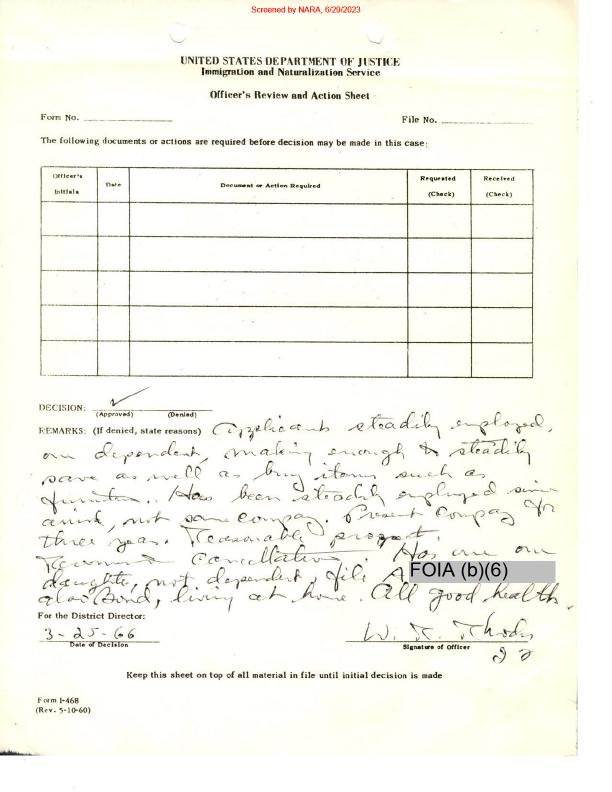 Screened by NARA, 6/29/2023
UNITED STATES DEPARTMENT OF JUSTICE
Immigration and Naturalization Service
Officer's Review and Action Sheet
Form No.
File No.
The following documents or actions are required before decision may be made in this case:
Officer's Initials
Date
Document or Action Required
Requested (Check)
Received (Check)
DECISION: ✓
(Approved) (Denied)
REMARKS: (If denied, state reasons) Applicants steadily employed,
one dependent, making enough to steadily
save as well as buy items such as
furniture. Has been steadily employed since
arrival, not same company. Present Company for
three years. Reasonable prospect.
Recommend Cancellation. Has one
daughter, not dependent, file A FOIA (b)(6)
also Bond, living at home. All good health.
For the District Director:
3-25-66
Date of Decision
Signature of Officer
Keep this sheet on top of all material in file until initial decision is made
Form I-468
(Rev. 5-10-60)